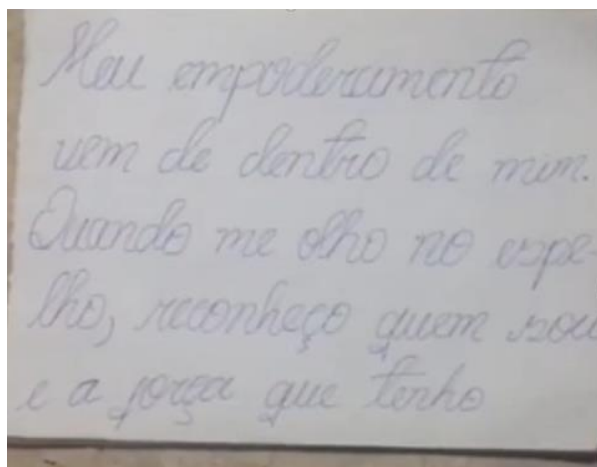 Meu empoderamento
vem de dentro de mim.
Quando me olho no espe-
lho, reconheço quem sou
e a força que tenho